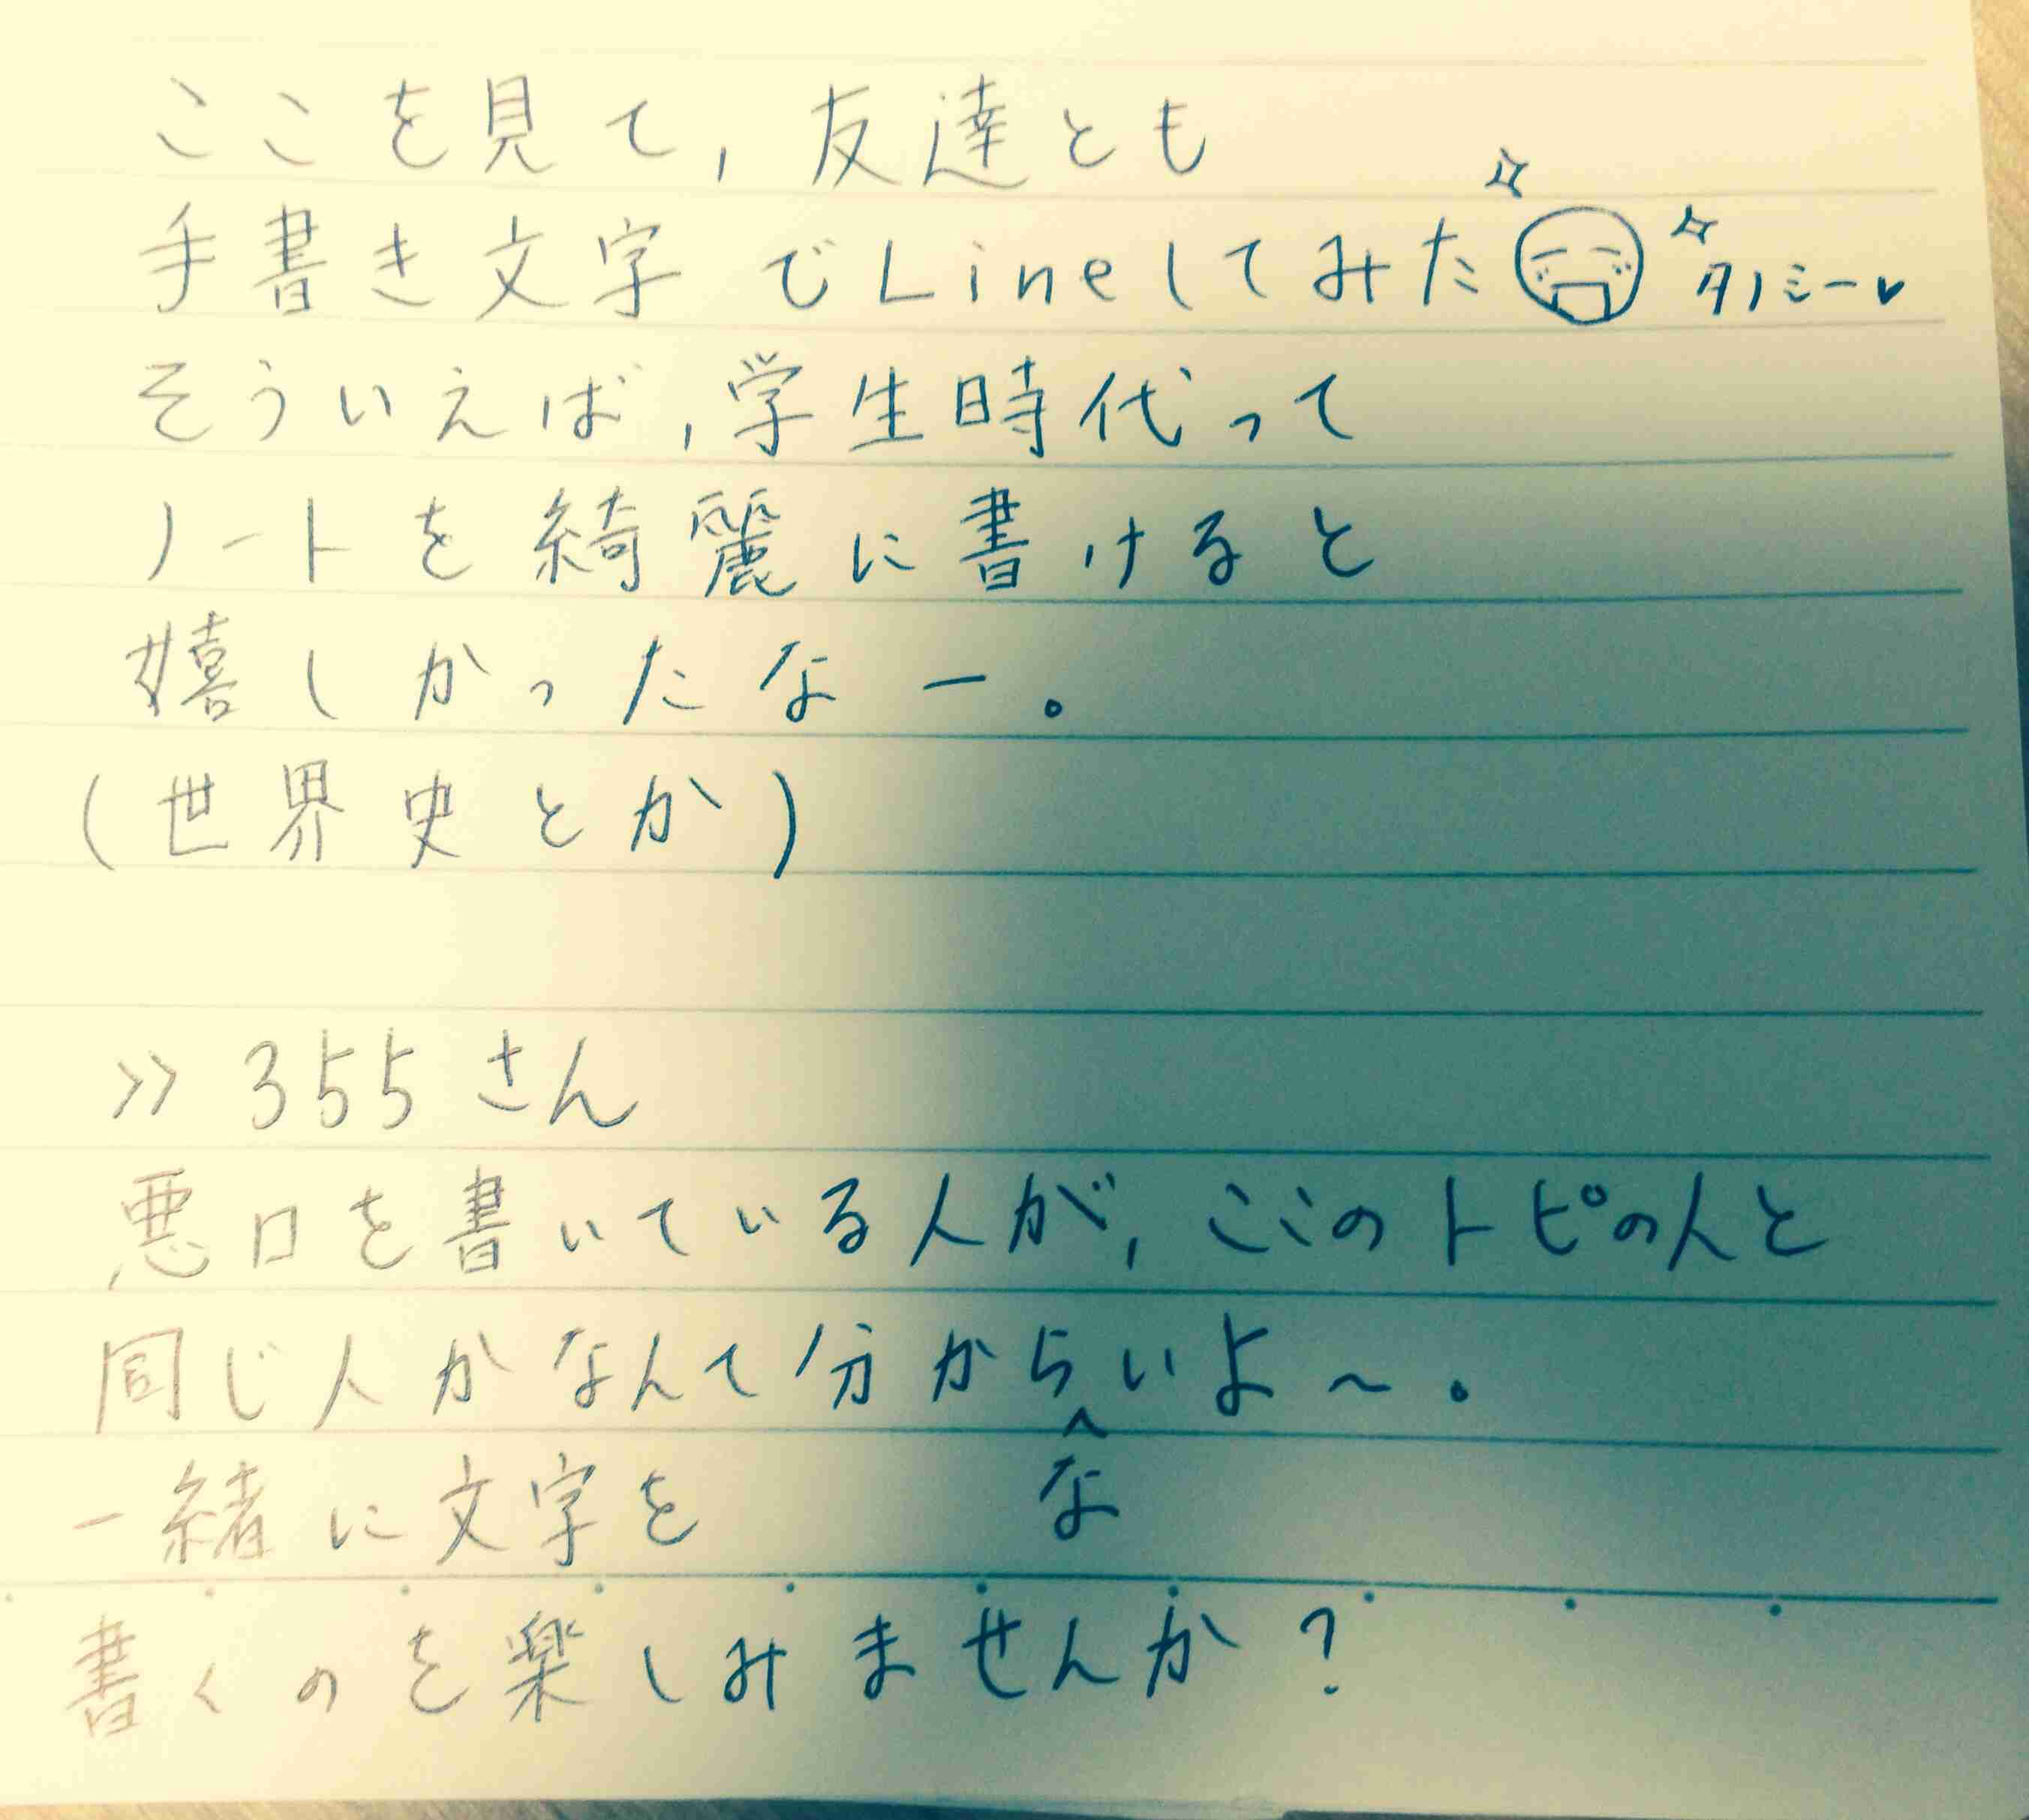 ここを見て,友達とも
手書き文字でLineしてみた タノシー♥
そういえば,学生時代って
ノートを綺麗に書けると
嬉しかったなー。
(世界史とか)
>>355さん
悪口を書いている人が,ここのトピの人と
同じ人かなんて分からないよ〜。
一緒に文字を
書くのを楽しみませんか?